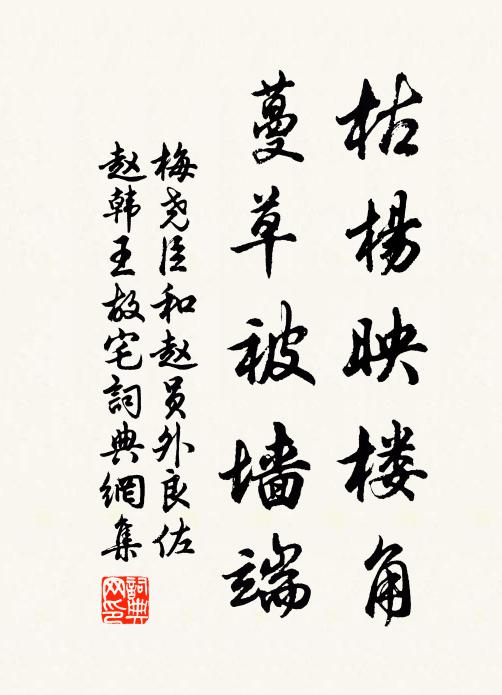 枯楊映楼角
蔓草被墙端
梅尧臣和赵员外良佐
赵韩王故宅詞典網集
詞典网印